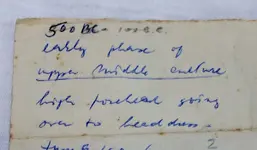 500 BC - 100 B.C.
early phase of
upper middle culture
high forehead going
over to headdress.
2